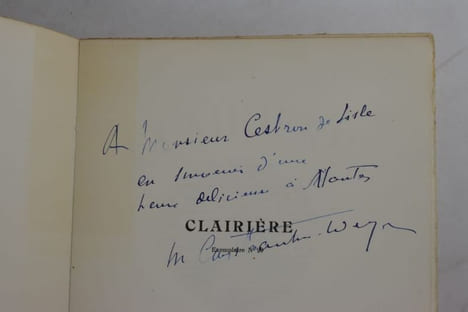 A Monsieur Cestron de Lisle
en souvenir d'une
heure délicieuse à Nantes
CLAIRIÈRE
Exemplaire
M Constantin-Weyer